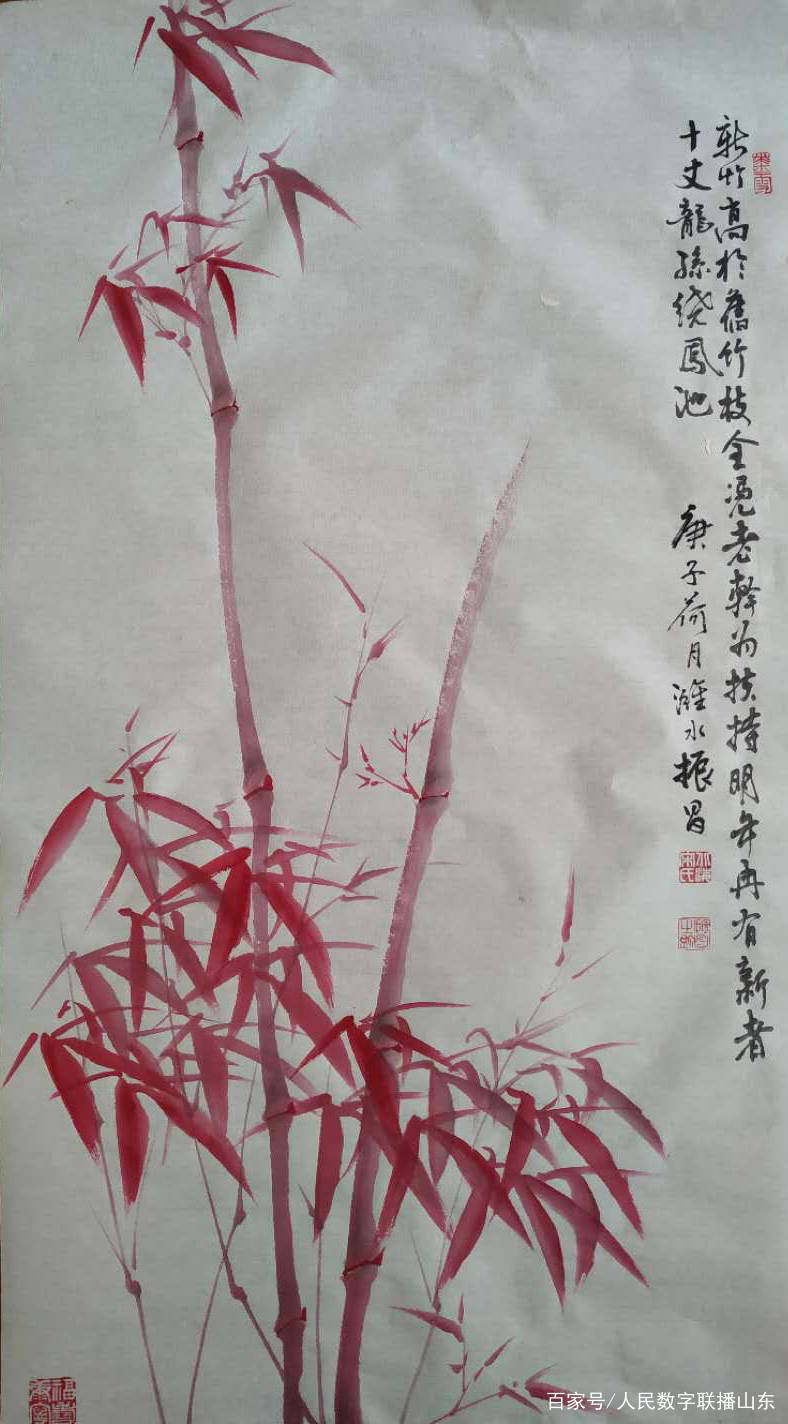 新竹高於舊竹枝全凴老幹为扶持明年再有新者
十丈龍孫绕鳳池
庚子荷月潍水振昌
福壽康寧
百家号/人民数字联播山东